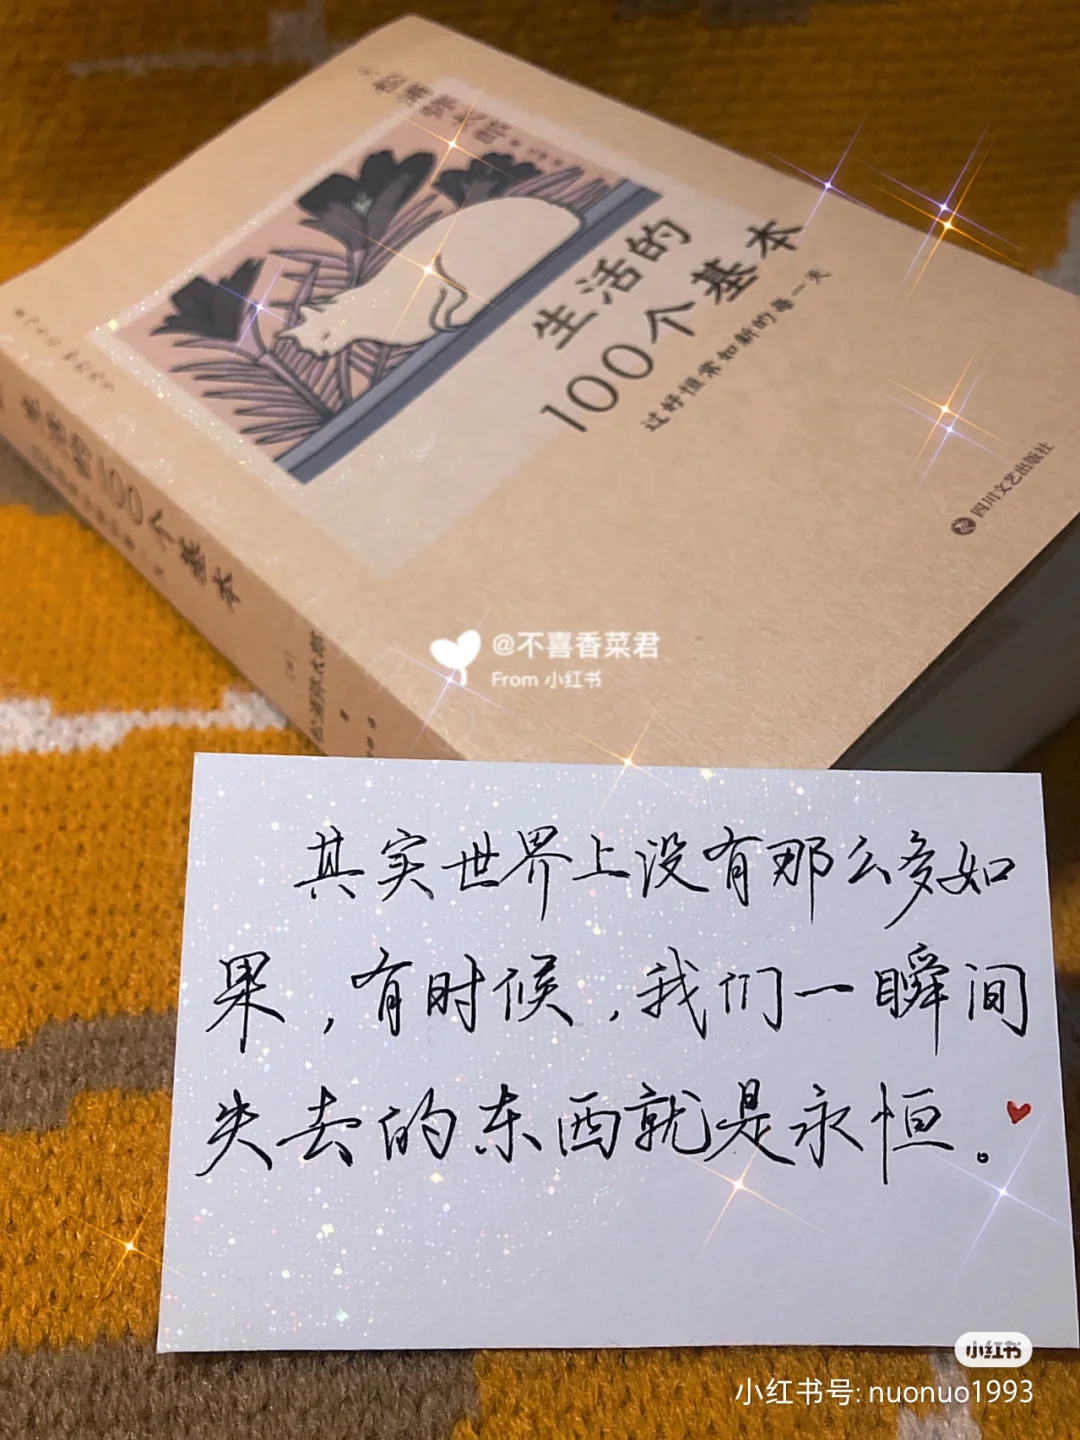 松浦弥太郎
生活的
100个基本
过好恒常如新的每一天
四川文艺出版社
生活的100个基本
松浦弥太郎
@不喜香菜君
From 小红书
其实世界上没有那么多如
果,有时候,我们一瞬间
失去的东西就是永恒。
小红书
小红书号: nuonuo1993